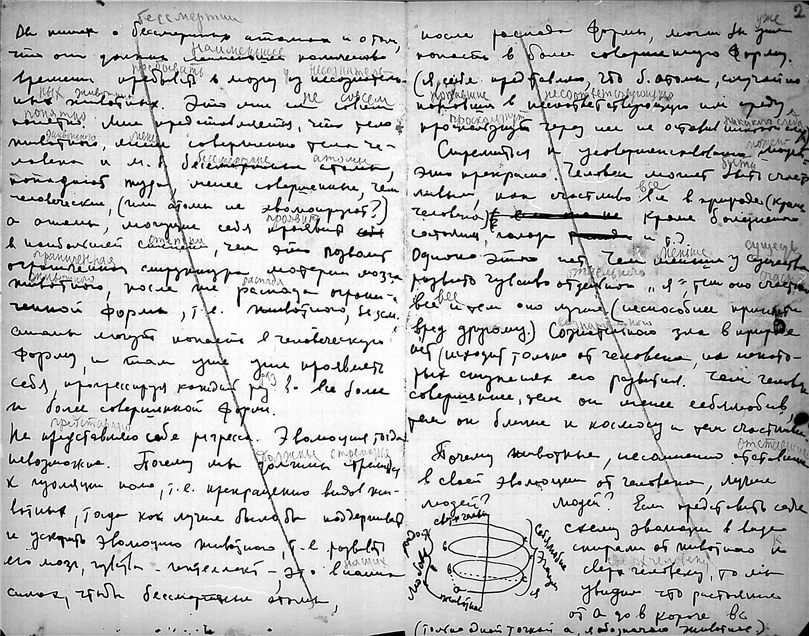 бессмертии
Вы пишете о бессмертных атомах и о том,
что они должны наименьшее количество
времени пребывать в мозгу
животных. Это мне не совсем
понятно. Мне представляется, что тело
животного, менее совершенно тела че-
ловека и м. б. бессмертные атомы,
попадают туда, менее совершенные, чем
человеческие, (или атомы не эволюционируют?)
а атомы, могущие себя проявить
в наибольшей степени, чем это позволяет
ограниченная структура материи мозга
животного, после распада ограни-
ченной формы, т.е. животного,
атомы могут попасть в человеческую
форму, и там уже проявлять
себя, прогрессируя каждый раз во все более
и более совершенной форме.
Не представляю себе регресса. Эволюция тогда
невозможна. Почему мы должны стремиться
к т.е. прекращению видов жи-
вотных, тогда как лучше было бы поддерживать
и ускорять эволюцию животного, т.е. развивать
его мозг, чувства - интеллект - это в наших
силах, чтобы бессмертные атомы,
2
после распада формы, могли бы уже
попасть в более совершенную форму.
(Я себе представляю, что б. атомы, случайно
попавшие в несоответствующую им среду
проскользнут через нее не оставив никакого следа)
Стремиться к усовершенствованию мира
это прекрасно. Человек может быть счаст-
ливым, как счастливо все в природе (кроме
человека) кроме болезненного
состояния, голода и т.д.
Однако этого нет. Чем меньше у существа
развито чувство отдельного "я" тем оно счастли-
вее и тем оно лучше (неспособнее принести
вред другому.) Сознательного зла в природе
нет (исходит только от человека, на некото-
рых ступенях его развития. Чем человек
совершеннее, тем он менее себялюбив,
тем он ближе к космосу и тем счастливее
Почему животные, несомненно отставшие
в своей эволюции от человека, лучше
людей?
людей? Если представить себе
схему эволюции в виде
спирали от животного к
сверхчеловеку, то мы
увидим что расстояние
от а до в короче вс
(только одной точкой а, я обозначаю животное)
сверхчеловек
животное
в
с
в
с
а
Я